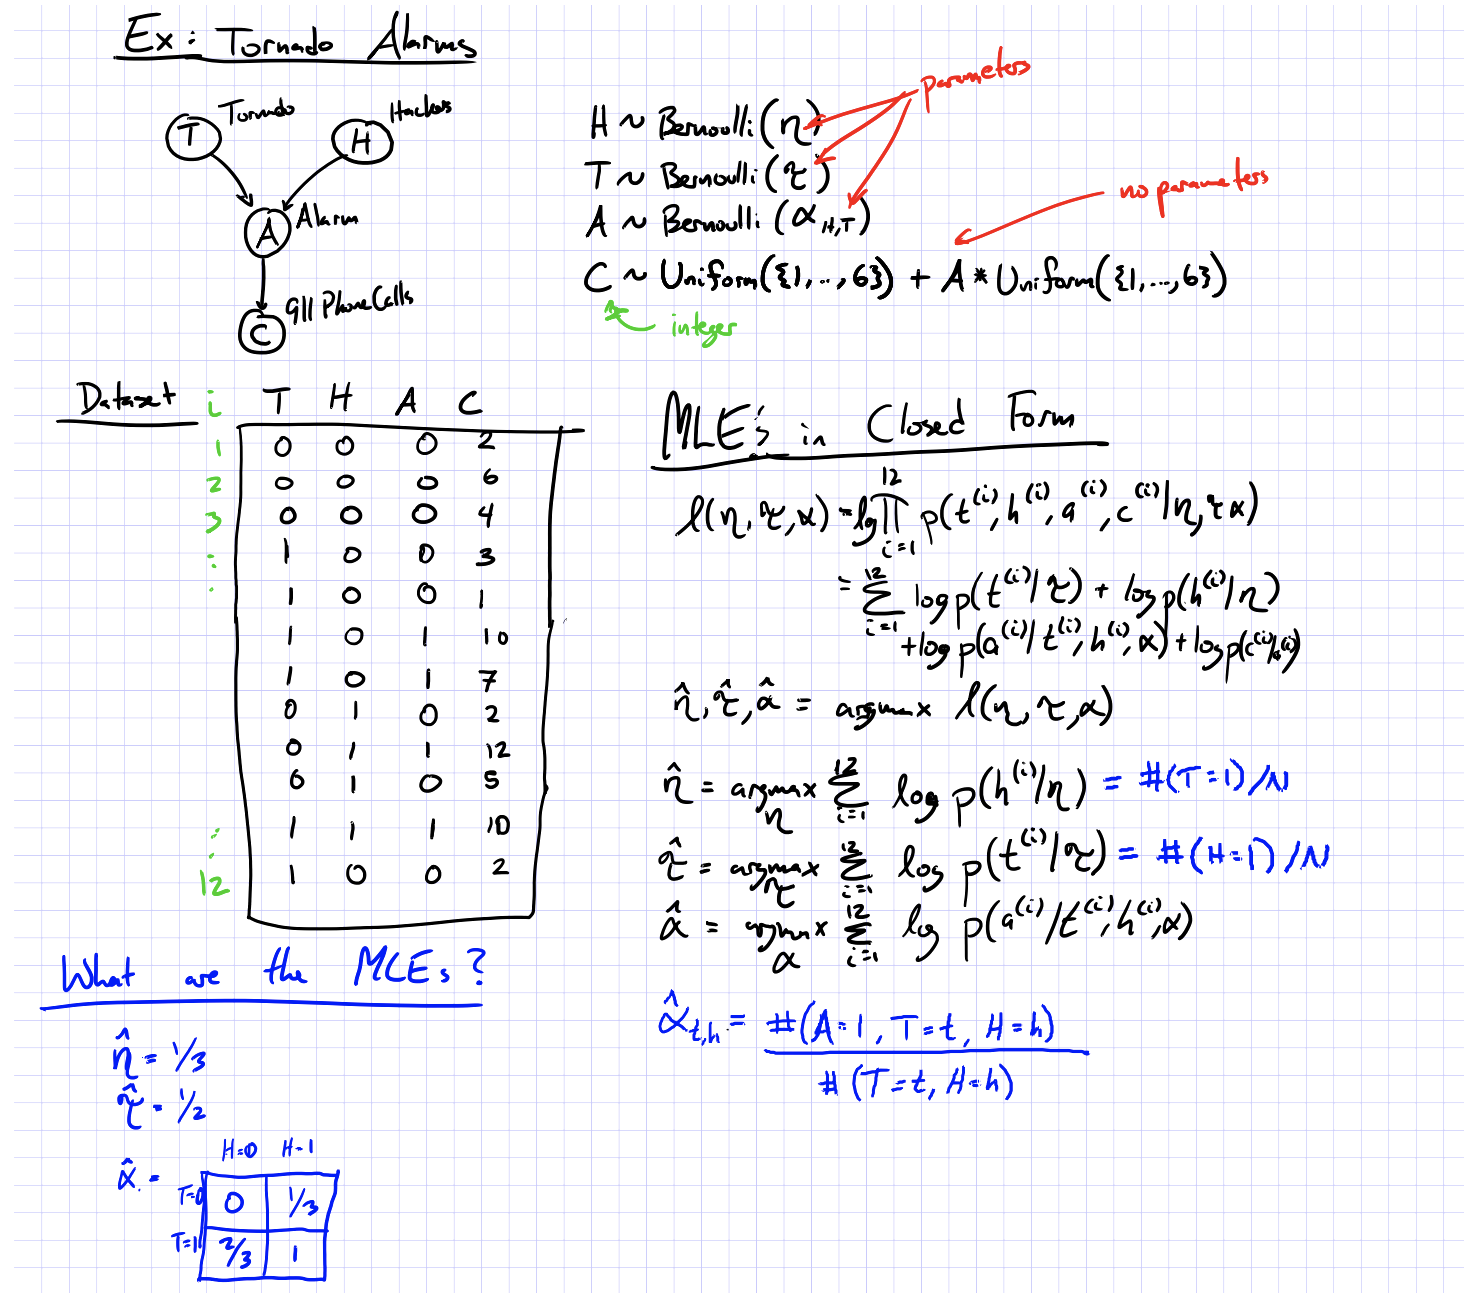 Ex: Tornado Alarms
T Tornado
H Hackers
A Alarm
C 911 Phone Calls
H ~ Bernoulli(η)
T ~ Bernoulli(τ)
A ~ Bernoulli(α_H,T)
C ~ Uniform({1,..,6}) + A * Uniform({1,...,6})
parameters
no parameters
integer
Dataset
i T H A C
1 0 0 0 2
2 0 0 0 6
3 0 0 0 4
: 1 0 0 3
· 1 0 0 1
1 0 1 10
1 0 1 7
0 1 0 2
0 1 1 12
0 1 0 5
: 1 1 1 10
12 1 0 0 2
MLE's in Closed Form
l(η, τ, α) = log ∏_{i=1}^{12} p(t^(i), h^(i), a^(i), c^(i) | η, τ α)
= Σ_{i=1}^{12} log p(t^(i) | τ) + log p(h^(i) | η)
+ log p(a^(i) | t^(i), h^(i), α) + log p(c^(i) | a^(i))
η̂, τ̂, α̂ = argmax l(η, τ, α)
η̂ = argmax_η Σ_{i=1}^{12} log p(h^(i) | η) = #(T=1)/N
τ̂ = argmax_τ Σ_{i=1}^{12} log p(t^(i) | τ) = #(H=1)/N
α̂ = argmax_α Σ_{i=1}^{12} log p(a^(i) | t^(i), h^(i), α)
α̂_t,h = #(A=1, T=t, H=h)
#(T=t, H=h)
What are the MLEs?
η̂ = 1/3
τ̂ = 1/2
α̂ =
H=0 H=1
T=0 0 1/3
T=1 2/3 1